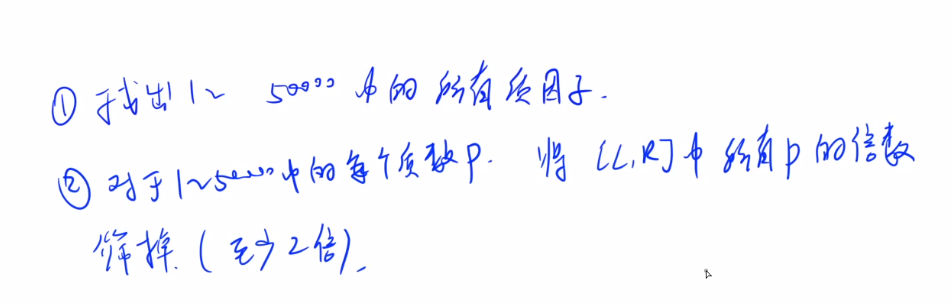 ① 找出 1~50000 中的所有质因子.
② 对于 1~50000 中的每个质数p. 将 [L,R] 中所有p的倍数
筛掉. (至少2倍).